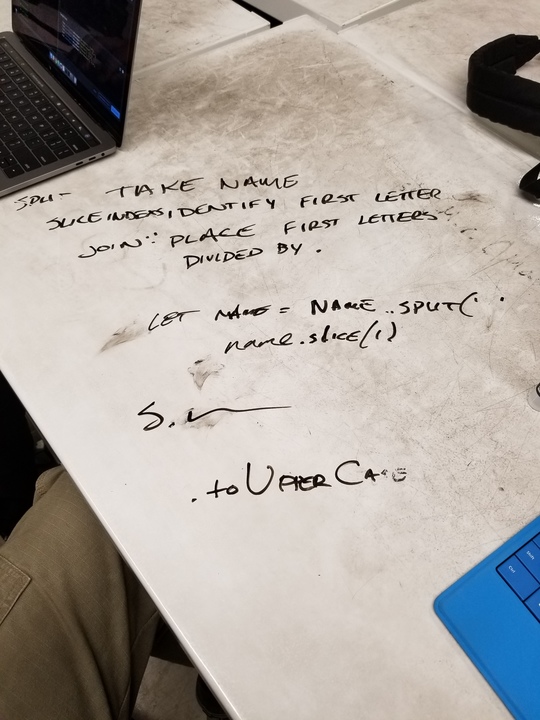 SPLIT - TAKE NAME
SLICE INDEX, IDENTIFY FIRST LETTER
JOIN: PLACE FIRST LETTERS
DIVIDED BY .
LET NAME = NAME..SPLIT(' '
name.slice(1)
S.
.to UPPER CASE